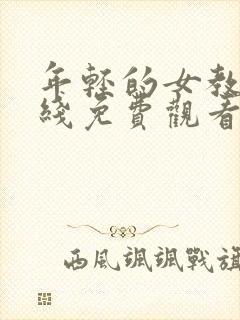 年輕的女教
綫免費觀看
西風颯颯戰旗